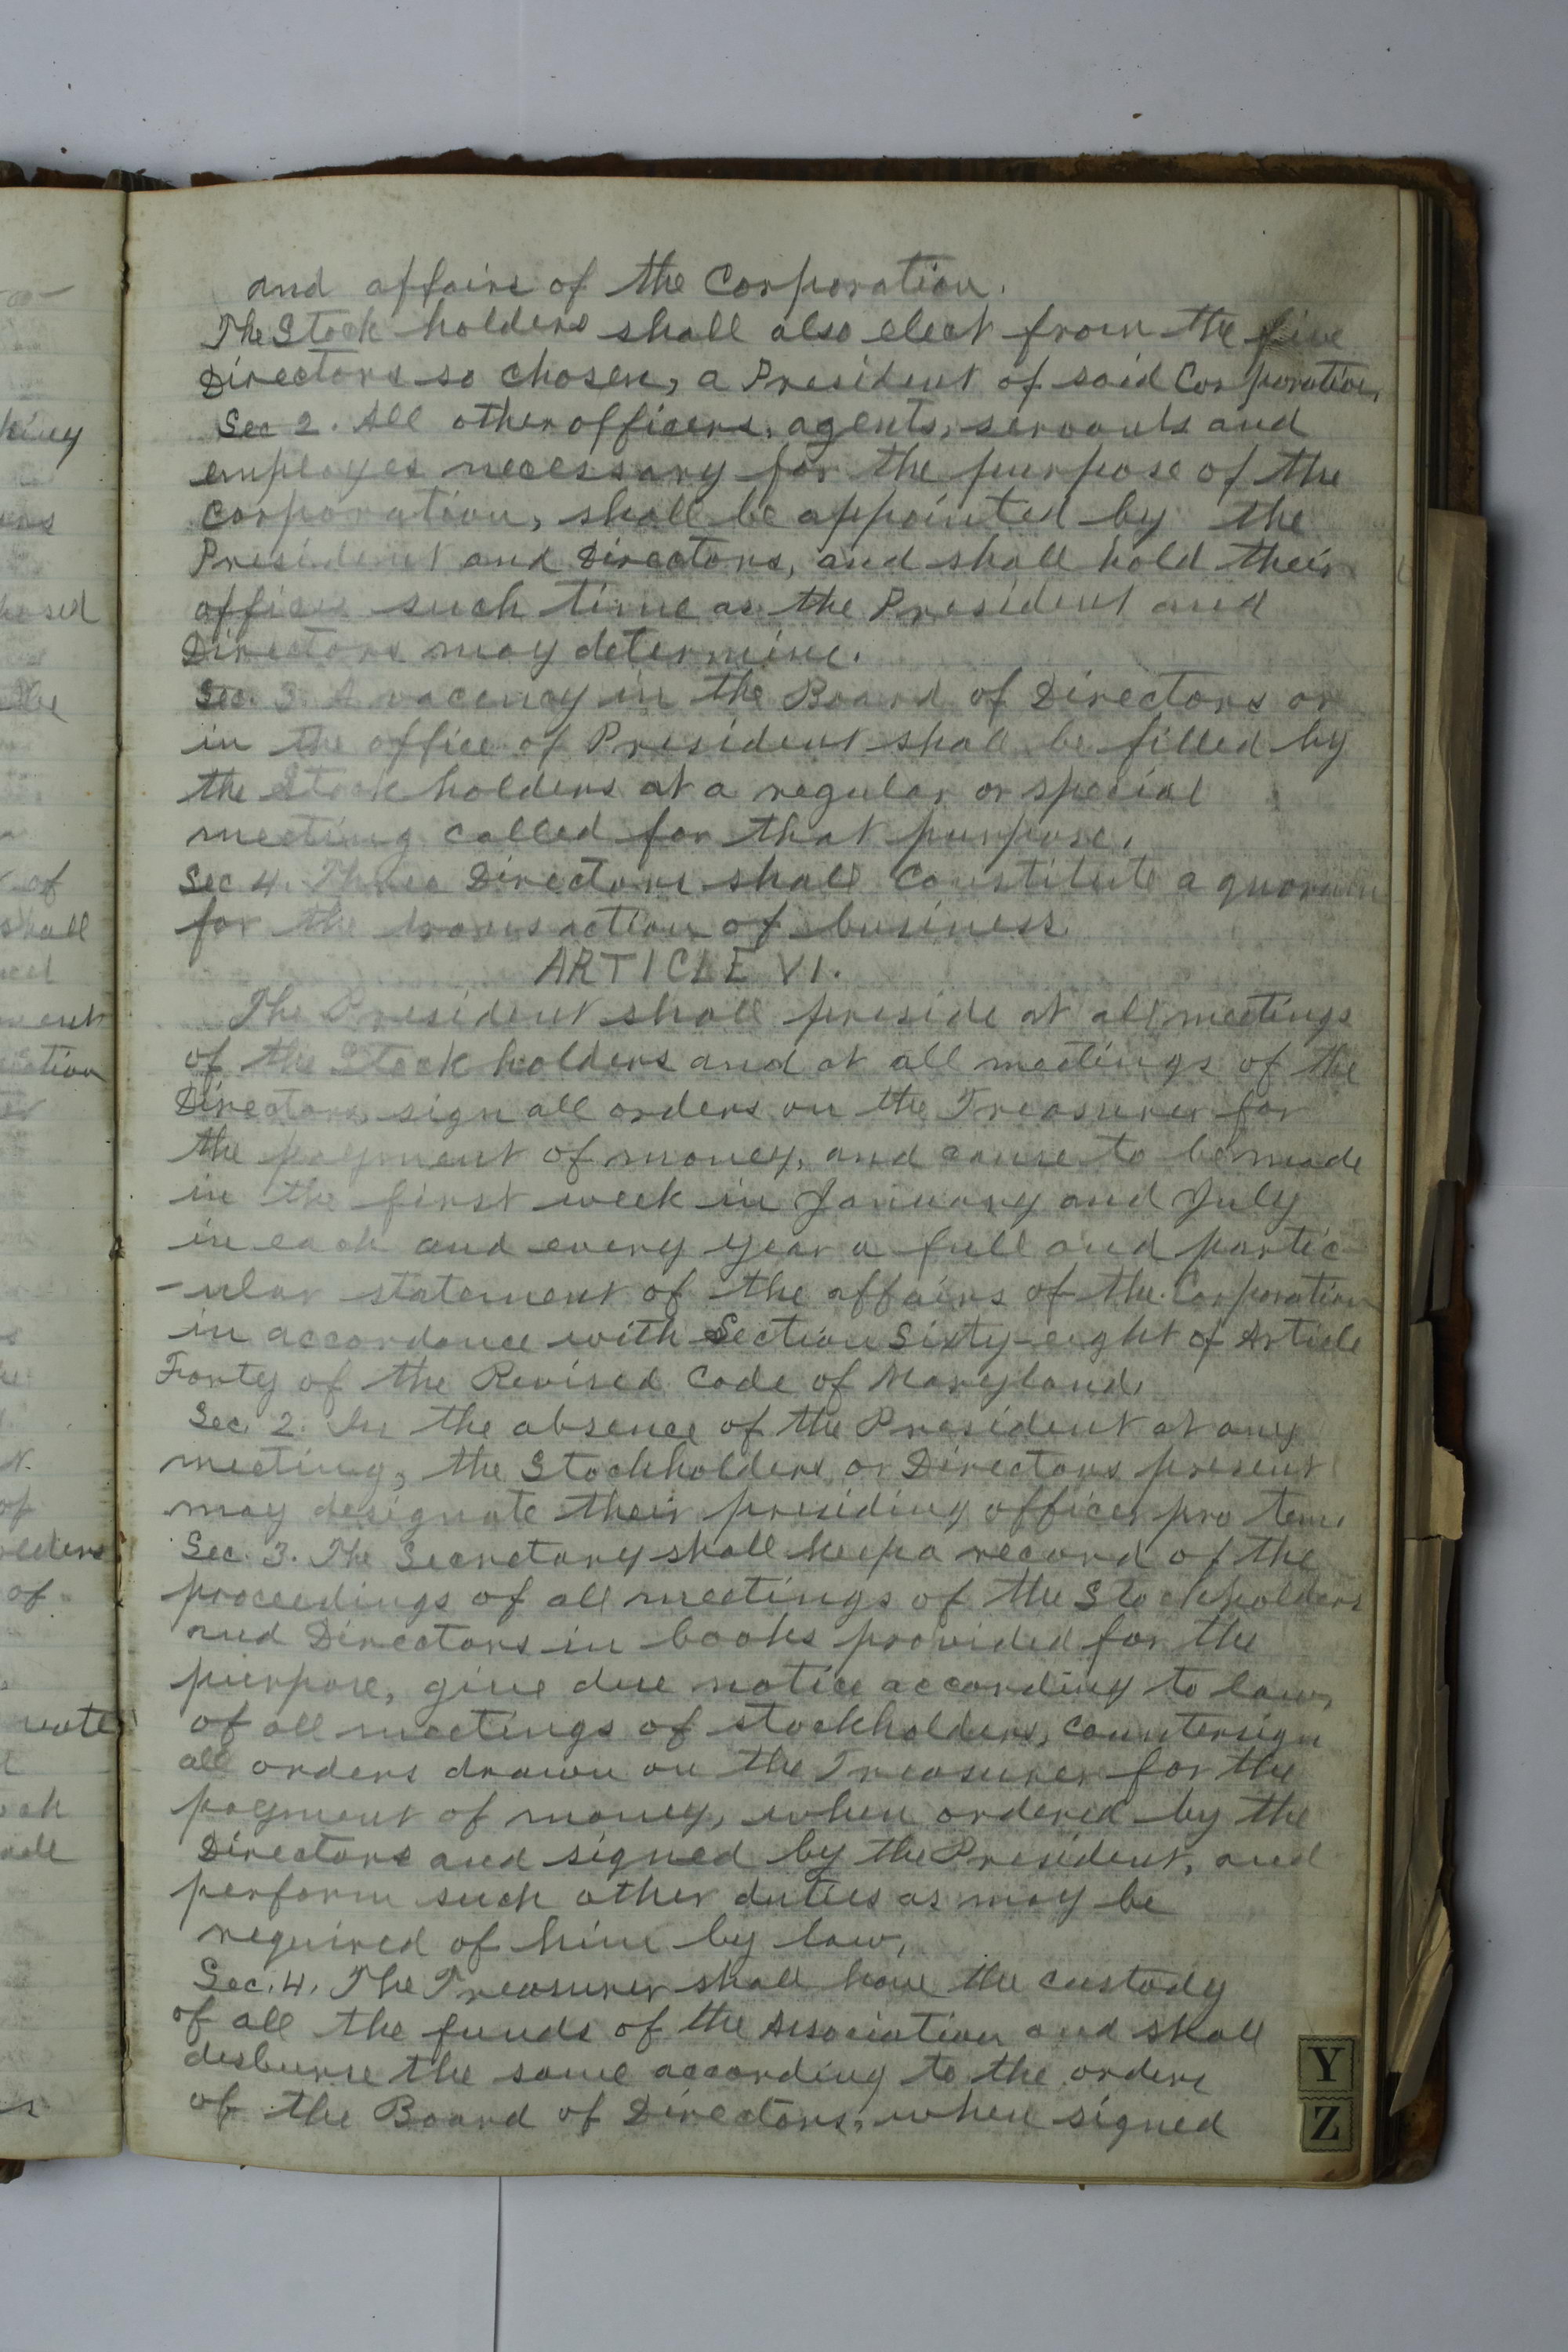 and affairs of the Corporation.
The Stock holders shall also elect from the five
Directors so chosen, a President of said Corporation,
Sec 2. All other officers, agents, servants and
employes necessary for the purpose of the
Corporation, shall be appointed by the
President and Directors, and shall hold their
offices such time as the President and
Directors may determine.
Sec. 3. A vacency in the Board of Directors or
in the office of President shall be filled by
the Stock holders at a regular or special
meeting called for that purpose.
Sec 4. Three Directors shall constitute a quorum
for the transaction of business.
ARTICLE VI.
The President shall preside at all meetings
of the Stock holders and at all meetings of the
Directors, sign all orders on the Treasurer for
the payment of money, and cause to be made
in the first week in January and July
in each and every year a full and partic-
-ular statement of the affairs of the Corporation
in accordance with Section Sixty-eight of Article
Forty of the Revised Code of Maryland.
Sec. 2. In the absence of the President at any
meeting, the Stockholders or Directors present
may designate their presiding officer pro tem.
Sec. 3. The Secretary shall keep a record of the
proceedings of all meetings of the Stockholders
and Directors in books provided for the
purpose, give due notice according to law,
of all meetings of stockholders, countersign
all orders drawn on the Treasurer for the
payment of money, when ordered by the
Directors and signed by the President, and
perform such other duties as may be
required of him by law.
Sec. 4. The Treasurer shall have the custody
of all the funds of the Association and shall
disburse the same according to the orders
of the Board of Directors, when signed
Y
Z